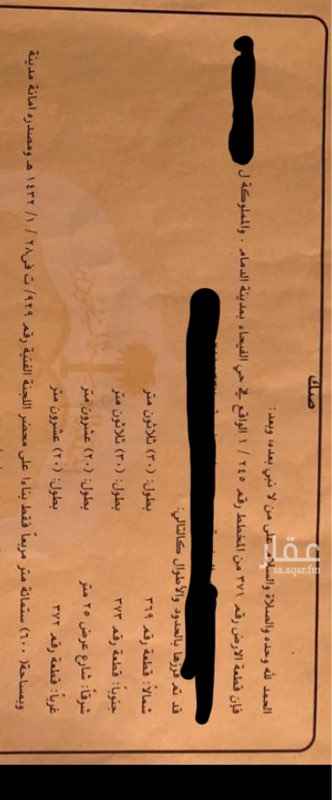 صك
الحمد لله وحده والصلاة والسلام على من لا نبي بعده، وبعد:
فإن قطعة الارض رقم ٣٧١ من المخطط رقم ٢٤٥ / ١ الواقع في حي الفيحاء بمدينة الدمام . والمملوكة ل
قد تم فرزها بالحدود والأطوال كالتالي:
شمالاً: قطعة رقم ٣٦٩ بطول: (٣٠) ثلاثون متر
جنوباً: قطعة رقم ٣٧٣ بطول: (٣٠) ثلاثون متر
شرقاً: شارع عرض ٢٥ متر بطول: (٢٠) عشرون متر
غرباً: قطعة رقم ٣٧٢ بطول: (٢٠) عشرون متر
وبمساحة( ٦٠٠) ستمائة متر مربعاً فقط بناءا على محضر اللجنة الفنية رقم ٩٢٩/ ت في ٢٨ / ١ / ١٤٣٢ هـ ومصدره امانة مدينة
عقار
sa.aqar.fm